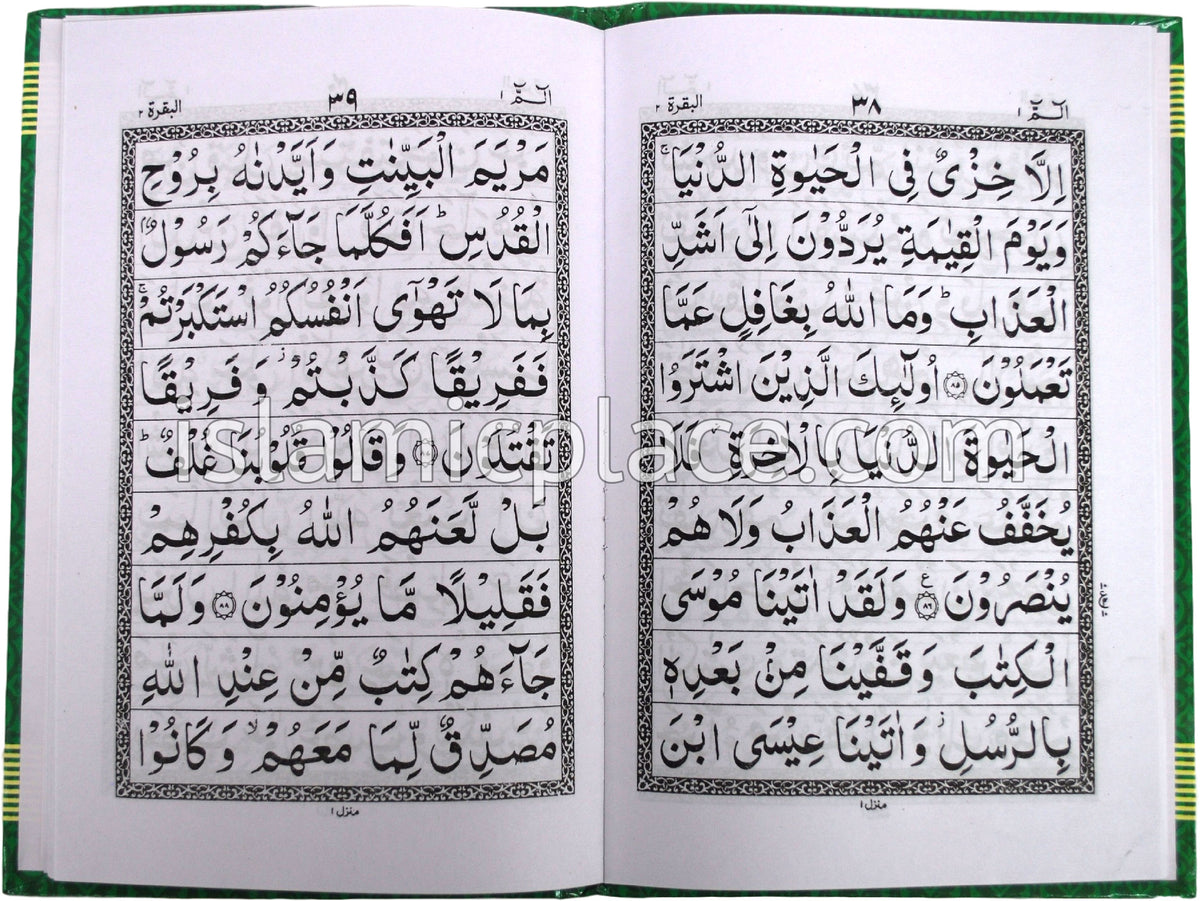 الٓـمّٓ ١
٣٨
البقرة ٢
اِلَّا خِزْیٌ فِی الْحَیٰوةِ الدُّنْیَا ۚ
وَیَوْمَ الْقِیٰمَةِ یُرَدُّوْنَ اِلٰۤی اَشَدِّ
الْعَذَابِ ؕ وَمَا اللّٰهُ بِغَافِلٍ عَمَّا
تَعْمَلُوْنَ ۝٨٥ اُولٰٓئِكَ الَّذِیْنَ اشْتَرَوُا
الْحَیٰوةَ الدُّنْیَا بِالْاٰخِرَةِ ؗ فَلَا
یُخَفَّفُ عَنْهُمُ الْعَذَابُ وَلَا هُمْ
یُنْصَرُوْنَ ۝٨٦ ع وَلَقَدْ اٰتَیْنَا مُوْسَی
الْكِتٰبَ وَقَفَّیْنَا مِنْۢ بَعْدِهٖ
بِالرُّسُلِ ؗ وَاٰتَیْنَا عِیْسَی ابْنَ
منزل ١
الٓـمّٓ ١
٣٩
البقرة ٢
مَرْیَمَ الْبَیِّنٰتِ وَاَیَّدْنٰهُ بِرُوْحِ
الْقُدُسِ ؕ اَفَكُلَّمَا جَآءَكُمْ رَسُوْلٌۢ
بِمَا لَا تَهْوٰۤی اَنْفُسُكُمُ اسْتَكْبَرْتُمْ ۚ
فَفَرِیْقًا كَذَّبْتُمْ ؗ وَفَرِیْقًا
تَقْتُلُوْنَ ۝٨٧ وَقَالُوْا قُلُوْبُنَا غُلْفٌ ؕ
بَلْ لَّعَنَهُمُ اللّٰهُ بِكُفْرِهِمْ
فَقَلِیْلًا مَّا یُؤْمِنُوْنَ ۝٨٨ وَلَمَّا
جَآءَهُمْ كِتٰبٌ مِّنْ عِنْدِ اللّٰهِ
مُصَدِّقٌ لِّمَا مَعَهُمْ ۙ وَكَانُوْا
منزل ١
islamicplace.com